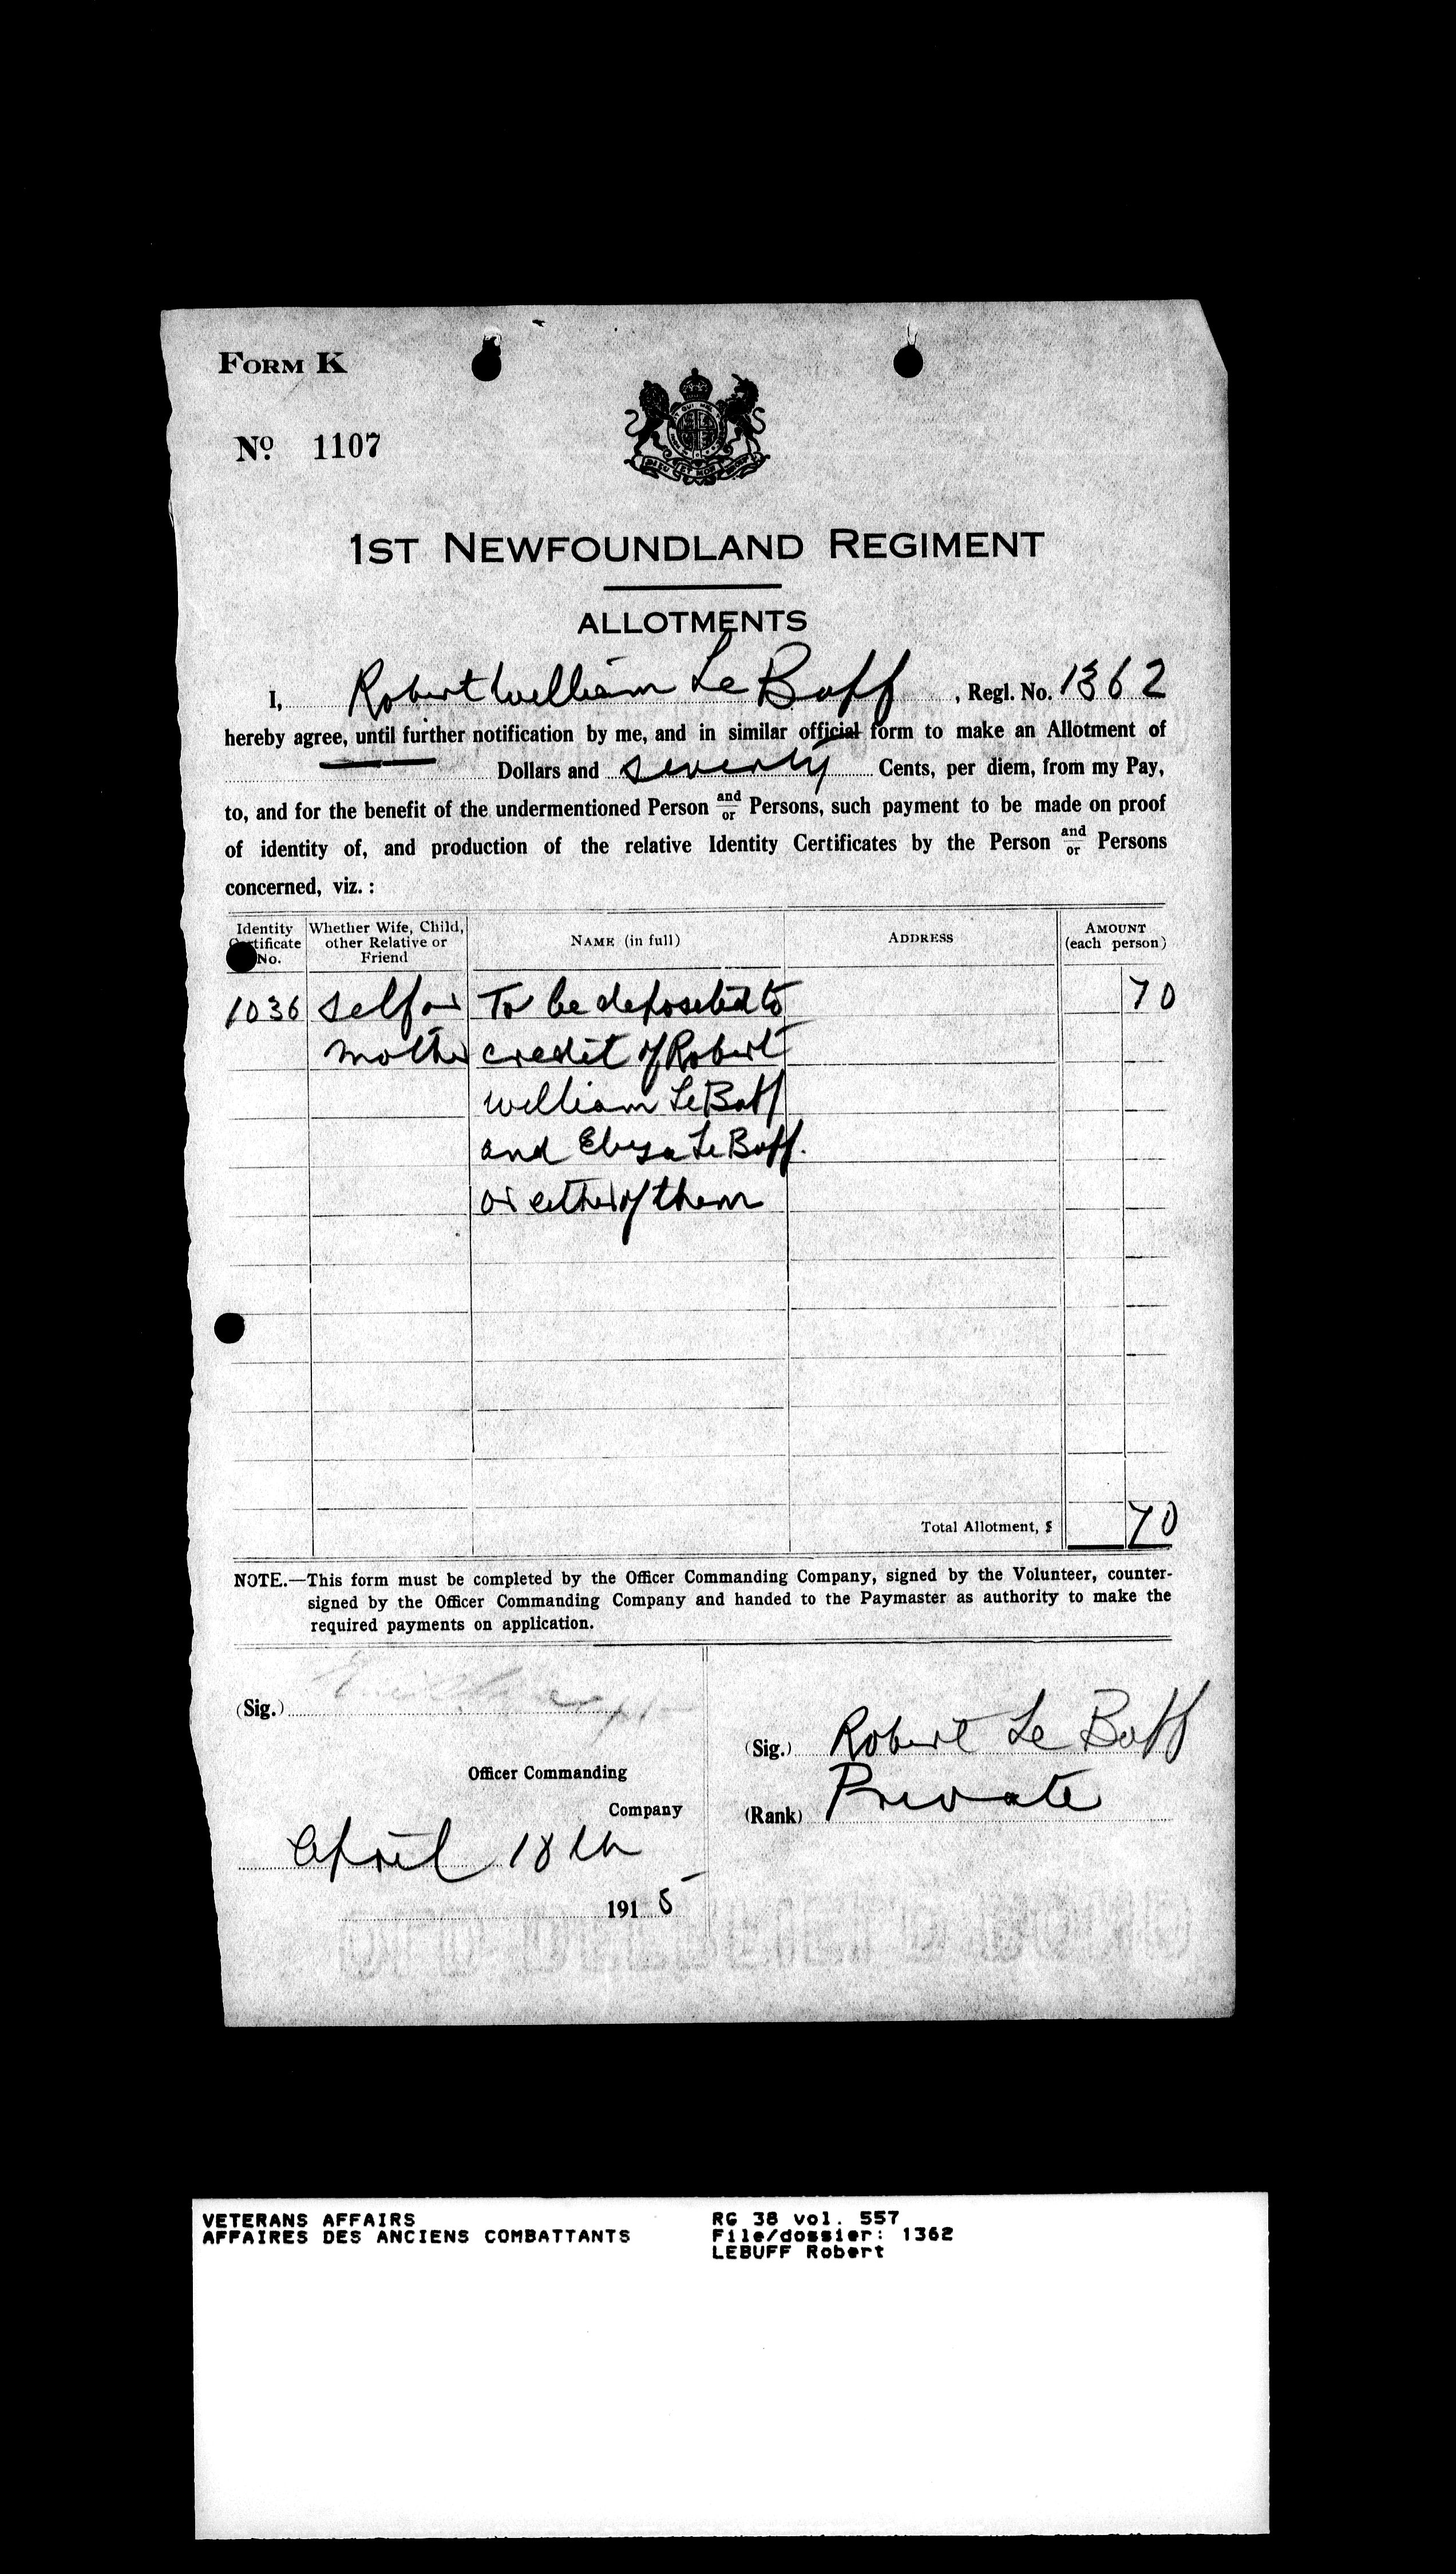 FORM K
No. 1107
1ST NEWFOUNDLAND REGIMENT
ALLOTMENTS
I, Robert William Le Buff, Regl. No. 1362
hereby agree, until further notification by me, and in similar official form to make an Allotment of
Dollars and seventy Cents, per diem, from my Pay,
to, and for the benefit of the undermentioned Person and/or Persons, such payment to be made on proof
of identity of, and production of the relative Identity Certificates by the Person and/or Persons
concerned, viz. :
Identity Certificate No. Whether Wife, Child, other Relative or Friend NAME (in full) ADDRESS AMOUNT (each person)
1036 self or To be deposited to 70
mother credit of Robert
William Le Buff
and Elyza Le Buff.
or either of them
Total Allotment, $ 70
NOTE.—This form must be completed by the Officer Commanding Company, signed by the Volunteer, counter-
signed by the Officer Commanding Company and handed to the Paymaster as authority to make the
required payments on application.
(Sig.)
(Sig.) Robert Le Buff
Officer Commanding
Company
(Rank) Private
April 18th
1915
VETERANS AFFAIRS RG 38 vol. 557
AFFAIRES DES ANCIENS COMBATTANTS File/dossier: 1362
LEBUFF Robert